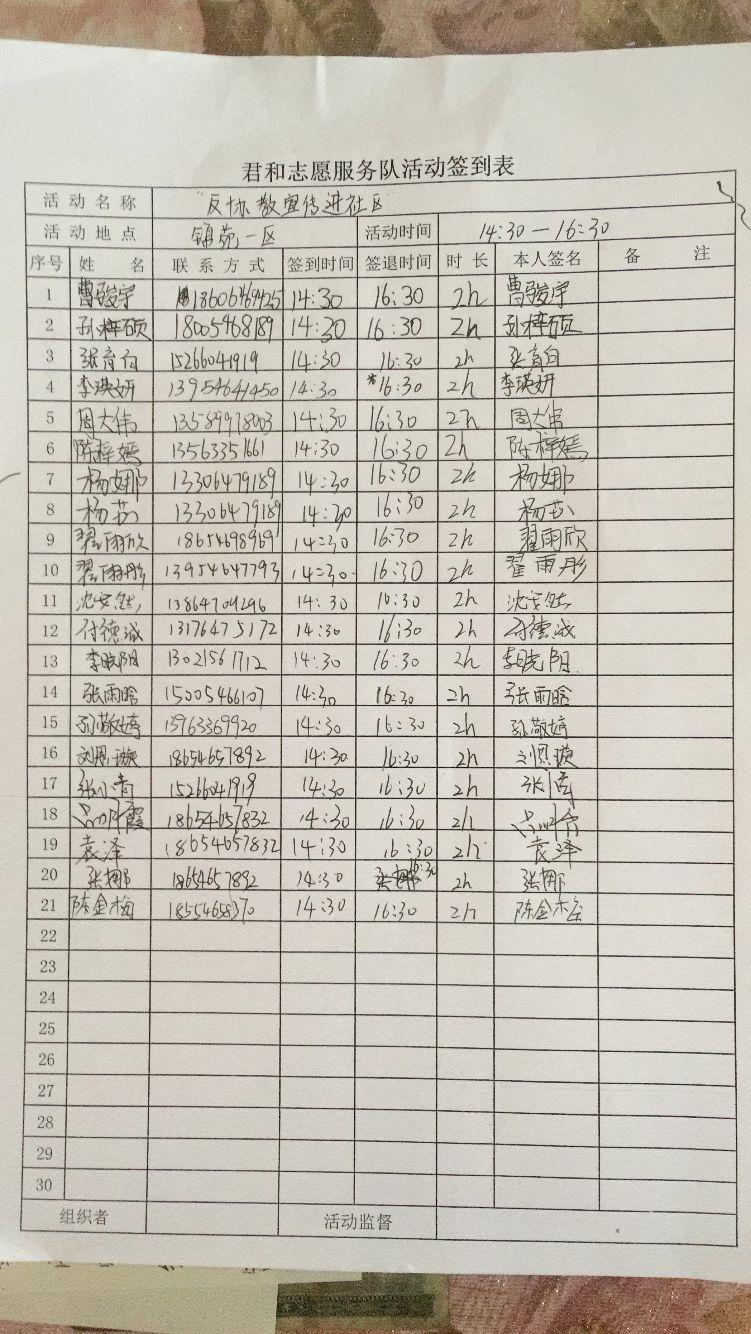 君和志愿服务队活动签到表
活动名称 "反邪教宣传进社区
活动地点 锦苑一区 活动时间 14:30—16:30
序号 姓名 联系方式 签到时间 签退时间 时长 本人签名 备注
1 曹骏宇 14:30 16:30 2h 曹骏宇
2 孙梓硕 18005468189 14:30 16:30 2h 孙梓硕
3 张育向 15266041919 14:30 16:30 2h 张育向
4 李瑛妍 13954641450 14:30 16:30 2h 李瑛妍
5 周大伟 13589978003 14:30 16:30 2h 周大伟
6 陈梓嫣 13563351661 14:30 16:30 2h 陈梓嫣
7 杨娜 13306479189 14:30 16:30 2h 杨娜
8 杨 13306479189 14:30 16:30 2h 杨
9 翟雨欣 18654698969 14:30 16:30 2h 翟雨欣
10 翟雨彤 13954647793 14:30 16:30 2h 翟雨彤
11 沈安然 13864709296 14:30 16:30 2h 沈安然
12 付德诚 13176475172 14:30 16:30 2h 付德诚
13 李晓阳 13021561712 14:30 16:30 2h 李晓阳
14 张雨晗 15005466107 14:30 16:30 2h 张雨晗
15 孙敬婷 13963369920 14:30 16:30 2h 孙敬婷
16 刘恩璇 18654657892 14:30 16:30 2h 刘恩璇
17 张 15266041919 14:30 16:30 2h 张
18 18654657832 14:30 16:30 2h
19 袁泽 18654657832 14:30 16:30 2h 袁泽
20 张娜 18654657892 14:30 16:30 2h 张娜
21 陈金梅 18554658370 14:30 16:30 2h 陈金梅
22
23
24
25
26
27
28
29
30
组织者 活动监督